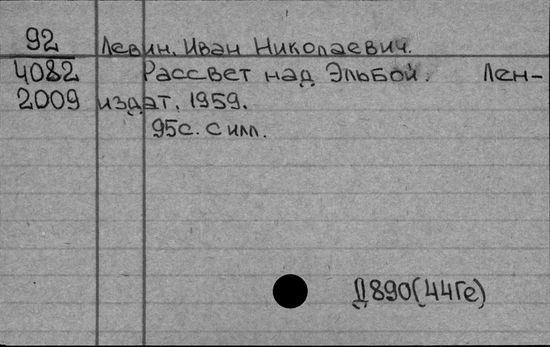 92 Левин, Иван Николаевич.
4082 Рассвет над Эльбой. Лен-
2009 издат, 1959.
95с. с илл.
Д890(44Ге)